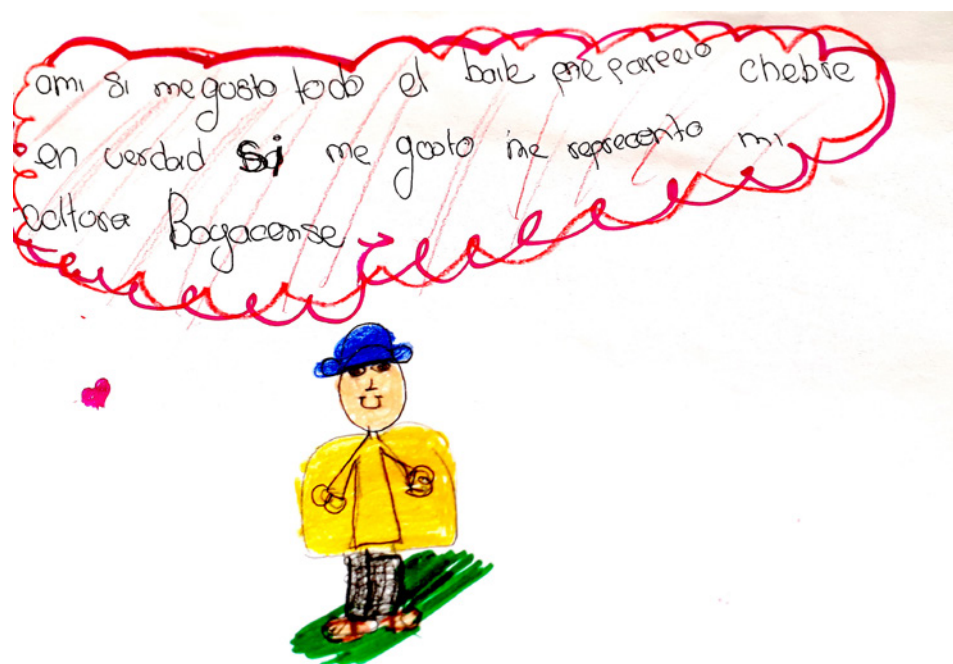 ami si me gusto todo el baile me parecio chebre
en verdad si me gusto me reprecento mi
coltora Boyacense